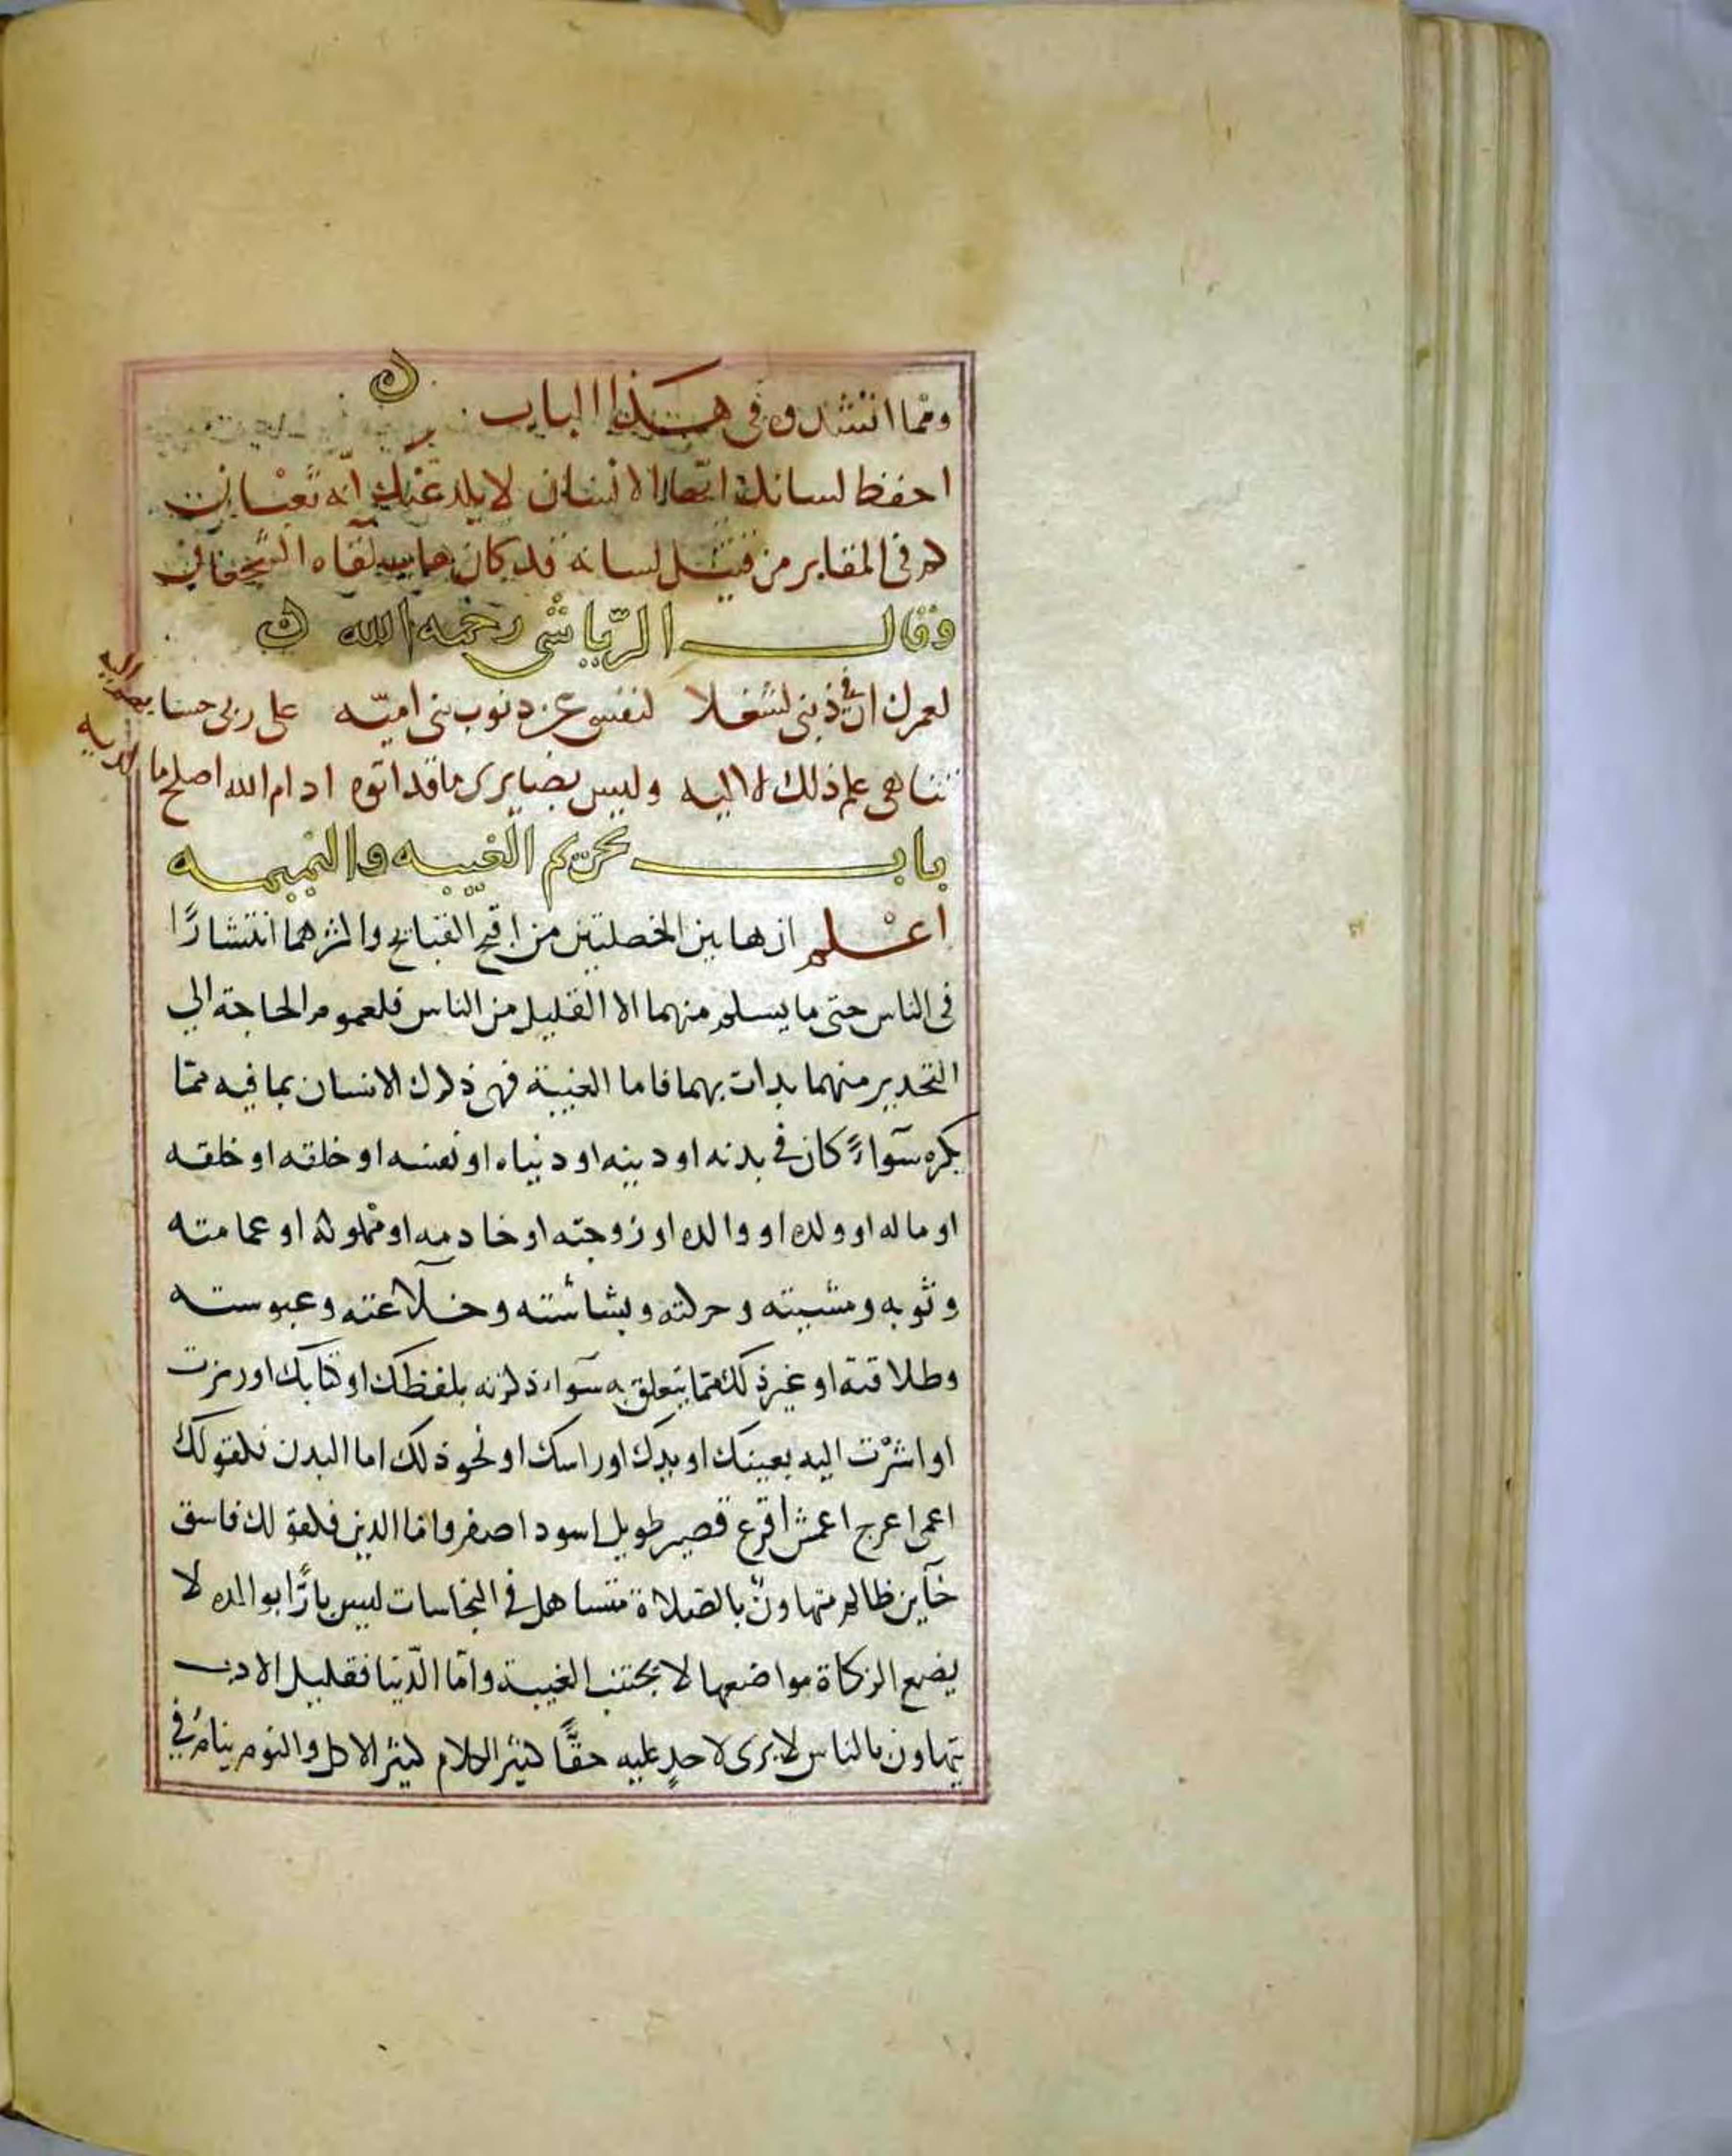 ومما انشدوه في هذا الباب
احفظ لسانك ايها الانسان لا يلدغنك انه ثعبان
كم في المقابر من قتيل لسانه قد كان هاب لقاه الشجعان
وقال الرياشي رحمه الله
لعمرك ان في ذنبي لشغلا لنفسي عن ذنوب بني اميه على ربي حسابهم اليه
تناهى علم ذلك لا اليه وليس بضايري ما قد اتوه اذا ما الله اصلح ما لديه
باب تحريم الغيبه والنميمه
اعلم ان هاتين الخصلتين من اقبح القبائح واكثرهما انتشارًا
في الناس حتى ما يسلم منهما الا القليل من الناس فلعموم الحاجة الي
التحذير منهما بدات بهما فاما الغيبة فهي ذكرك الانسان بما فيه ممّا
يكره سوآءً كان في بدنه او دينه او دنياه او نفسه او خلقه او خلقه
او ماله او ولده او والده او زوجته او خادمه او مملوكه او عمامته
وثوبه ومشيته وحركته وبشاشته وخلاعته وعبوسته
وطلاقته او غير ذلك ممّا يتعلق به سوآء ذكرته بلفظك او كتابك او رمزت
او اشرْت اليه بعينك او يدك او راسك او نحو ذلك اما البدن فكقولك
اعمى اعرج اعمش اقرع قصير طويل اسود اصفر واما الدين فكقولك فاسق
خآين ظالم متهاونٌ بالصّلاة متساهل في النجاسات ليس بارًّا بوالده لا
يضع الزكاة مواضعها لا يجتنب الغيبة وامّا الدّنيا فقليل الادب
يتهاون بالناس لا يرى لاحدٍ عليه حقًّا كثير الكلام كثير الاكل والنوم ينامُ في